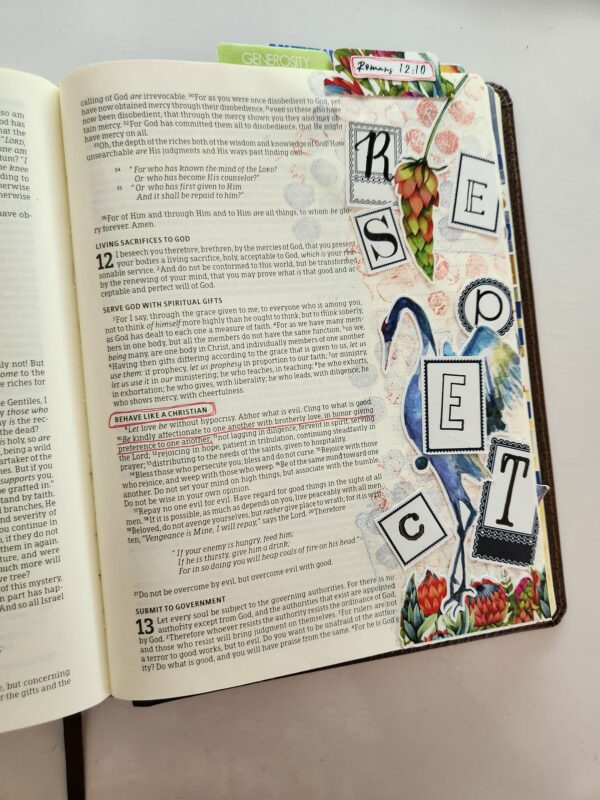 GENEROSITY
Romans 12:10
so am
"LORD,
one am
him? "I
e knee
ding to
herwise
herwise
have ob-
ly not! But
come to the
e riches for
Gentiles, I
y those who
y is the rec-
the dead?
is holy, so are
, being a wild
artaker of the
hes. But if you
supports you.
e grafted in."
stand by faith.
l branches, He
nd severity of
u continue in
o, if they do not
them in again.
ture, and were
uch more will
ve tree?
of this mystery,
n part has hap-
And so all Israel
, but concerning
r the gifts and the
calling of God are irrevocable. 30For as you were once disobedient to God, yet
have now obtained mercy through their disobedience, 31even so these also have
now been disobedient, that through the mercy shown you they also may ob-
tain mercy. 32For God has committed them all to disobedience, that He might
have mercy on all.
33Oh, the depth of the riches both of the wisdom and knowledge of God! How
unsearchable are His judgments and His ways past finding out!
34 "For who has known the mind of the LORD?
Or who has become His counselor?"
35 "Or who has first given to Him
And it shall be repaid to him?"
36For of Him and through Him and to Him are all things, to whom be glo-
ry forever. Amen.
LIVING SACRIFICES TO GOD
12 I beseech you therefore, brethren, by the mercies of God, that you present
your bodies a living sacrifice, holy, acceptable to God, which is your rea-
sonable service. 2And do not be conformed to this world, but be transformed
by the renewing of your mind, that you may prove what is that good and ac-
ceptable and perfect will of God.
SERVE GOD WITH SPIRITUAL GIFTS
3For I say, through the grace given to me, to everyone who is among you,
not to think of himself more highly than he ought to think, but to think soberly,
as God has dealt to each one a measure of faith. 4For as we have many mem-
bers in one body, but all the members do not have the same function, 5so we,
being many, are one body in Christ, and individually members of one another.
6Having then gifts differing according to the grace that is given to us, let us
use them: if prophecy, let us prophesy in proportion to our faith; 7or ministry,
let us use it in our ministering; he who teaches, in teaching; 8he who exhorts,
in exhortation; he who gives, with liberality; he who leads, with diligence; he
who shows mercy, with cheerfulness.
BEHAVE LIKE A CHRISTIAN
9Let love be without hypocrisy. Abhor what is evil. Cling to what is good.
10Be kindly affectionate to one another with brotherly love, in honor giving
preference to one another; 11not lagging in diligence, fervent in spirit, serving
the Lord; 12rejoicing in hope, patient in tribulation, continuing steadfastly in
prayer; 13distributing to the needs of the saints, given to hospitality.
14Bless those who persecute you; bless and do not curse. 15Rejoice with those
who rejoice, and weep with those who weep. 16Be of the same mind toward one
another. Do not set your mind on high things, but associate with the humble.
Do not be wise in your own opinion.
17Repay no one evil for evil. Have regard for good things in the sight of all
men. 18If it is possible, as much as depends on you, live peaceably with all men.
19Beloved, do not avenge yourselves, but rather give place to wrath; for it is writ-
ten, "Vengeance is Mine, I will repay," says the Lord. 20Therefore
"If your enemy is hungry, feed him;
If he is thirsty, give him a drink;
For in so doing you will heap coals of fire on his head."
21Do not be overcome by evil, but overcome evil with good.
SUBMIT TO GOVERNMENT
13 Let every soul be subject to the governing authorities. For there is no
authority except from God, and the authorities that exist are appointed
by God. 2Therefore whoever resists the authority resists the ordinance of God,
and those who resist will bring judgment on themselves. 3For rulers are not
a terror to good works, but to evil. Do you want to be unafraid of the authority?
Do what is good, and you will have praise from the same. 4For he is God's
R
E
S
P
E
C
T